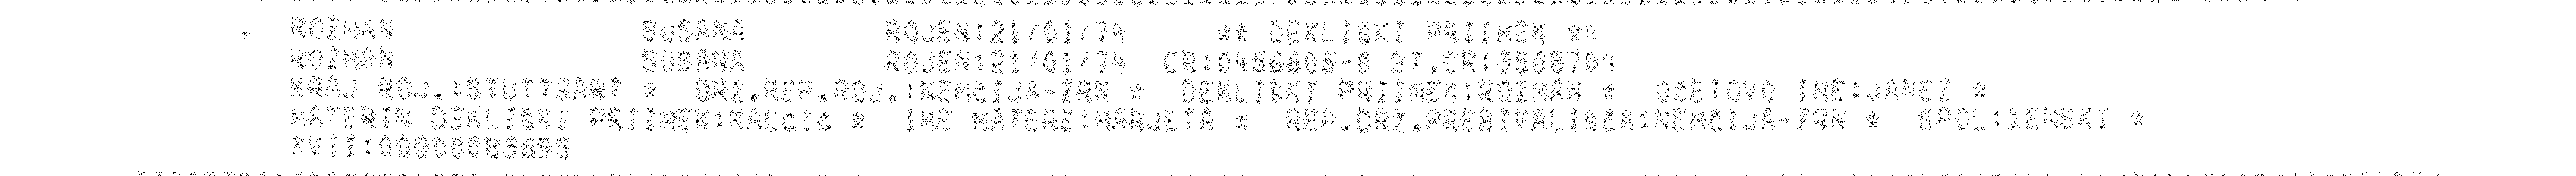 * ROZMAN SUSANA ROJEN:21/01/74 ** DEKLIŠKI PRIIMEK **
ROZMAN SUSANA ROJEN:21/01/74 CR:0456606-0 ST.CR:3508704
KRAJ ROJ.:STUTTGART * DRZ.REP.ROJ.:NEMČIJA-ZRN * DEKLIŠKI PRIIMEK:ROZMAN * OČETOVO IME:JANEZ *
MATERIN DEKLIŠKI PRIIMEK:KAUČIČ * IME MATERE:MARJETA * REP.DRZ.PREBIVALIŠČA:NEMČIJA-ZRN * SPOL:ZENSKI *
XVII:00000083695